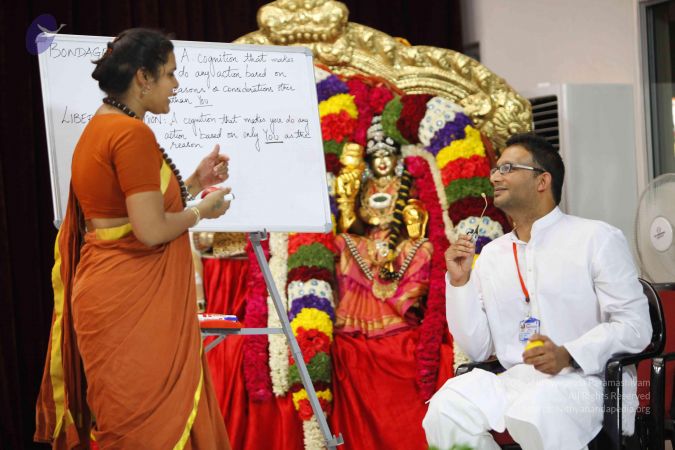 BONDAG A COGNITION THAT MAKES
DO ANY ACTION BASED ON
REASONS OR CONSIDERATIONS OTHER
THAN YOU
LIBE TION: A COGNITION THAT MAKES YOU DO ANY
ACTION BASED ON ONLY YOU AS THE
REASON
Nithyananda Paramashivam
All Rights Reserved
Source: Nithyanandapedia.org